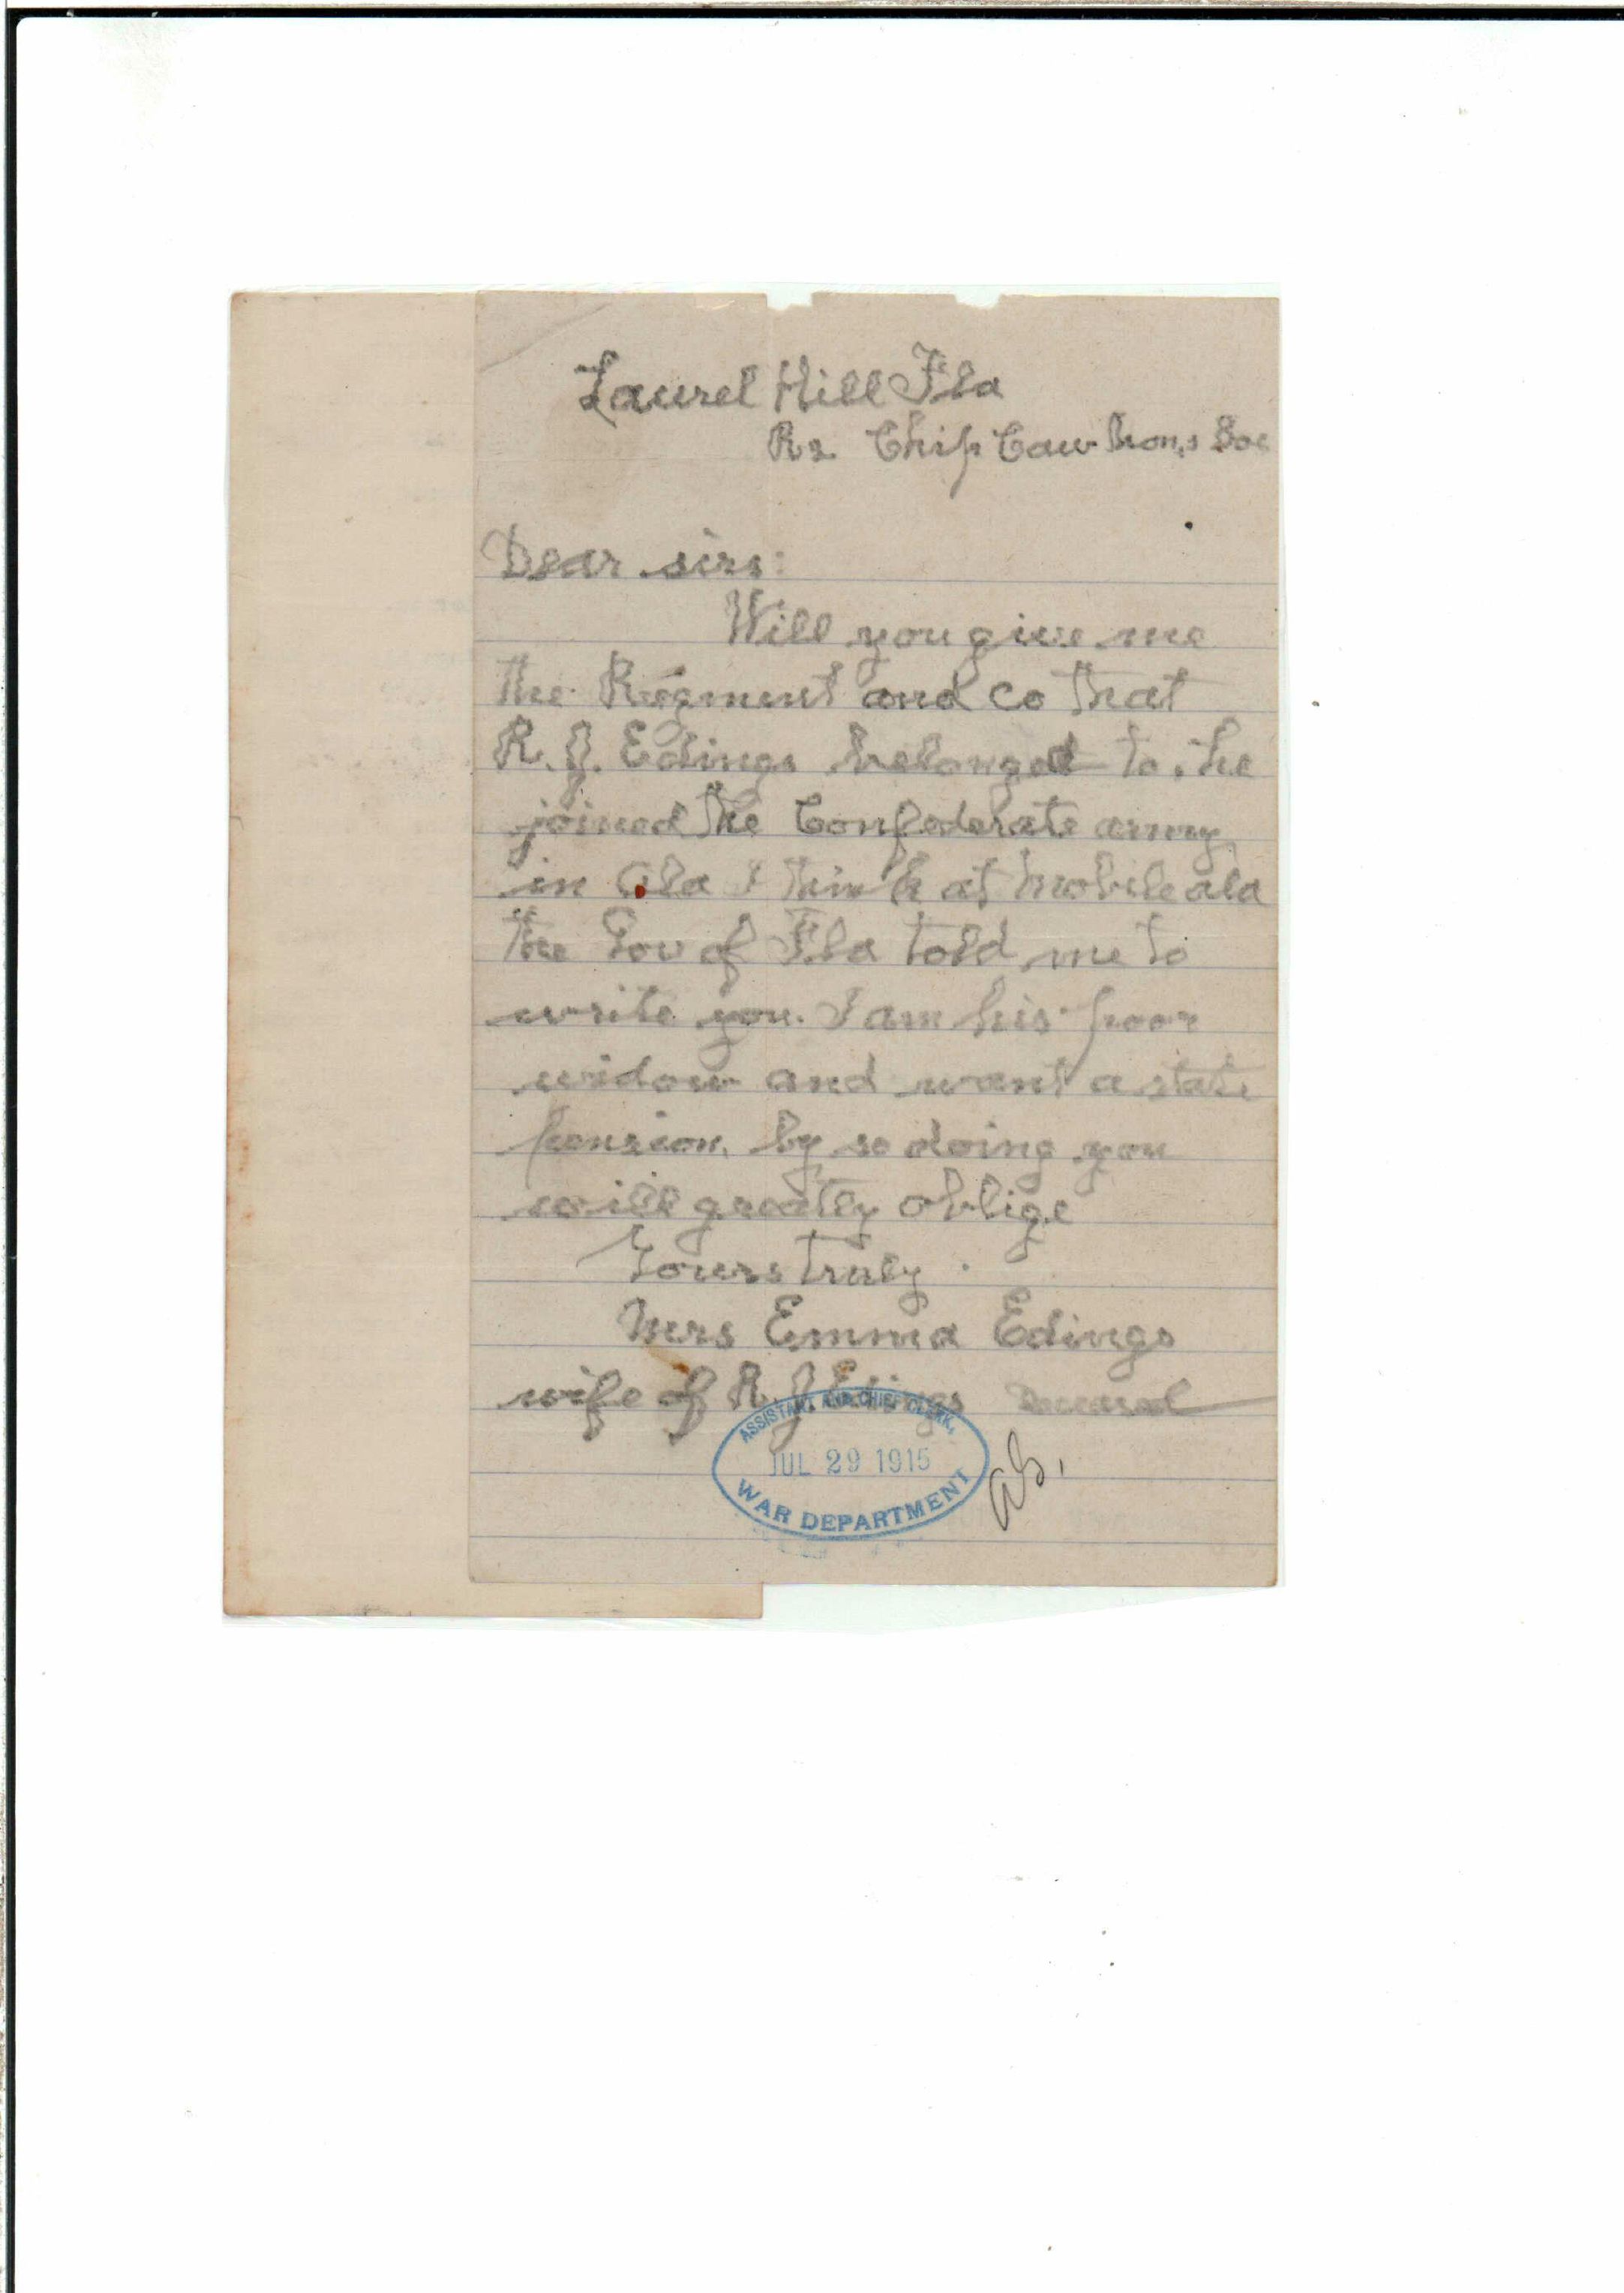 Laurel Hill Fla
R2 Chip Cawthons Box
Dear sirs:
Will you give me
the Regment and co that
R. J. Edings belonged to. he
joined the Confederate army
in Ala I think at Mobile ala
the Gov of Fla told me to
write you. I am his poor
widow and want a state
pension, by so doing you
will greatly oblige
Yours truly
Mrs Emma Edings
wife of R. J. Edings Deceased
ASSISTANT AND CHIEF CLERK,
JUL 29 1915
WAR DEPARTMENT